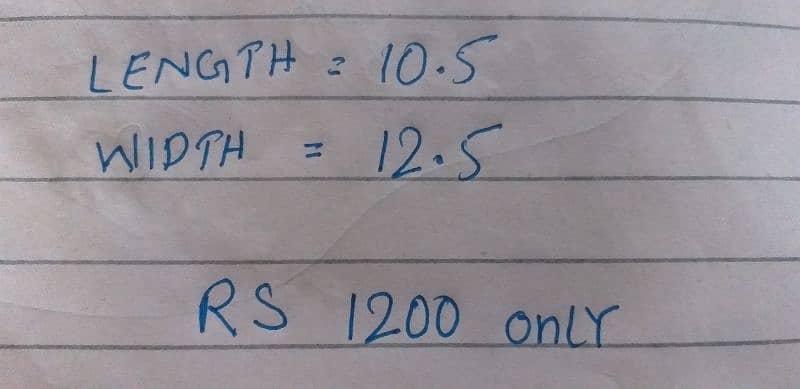 LENGTH = 10.5
WIDTH = 12.5
RS 1200 only